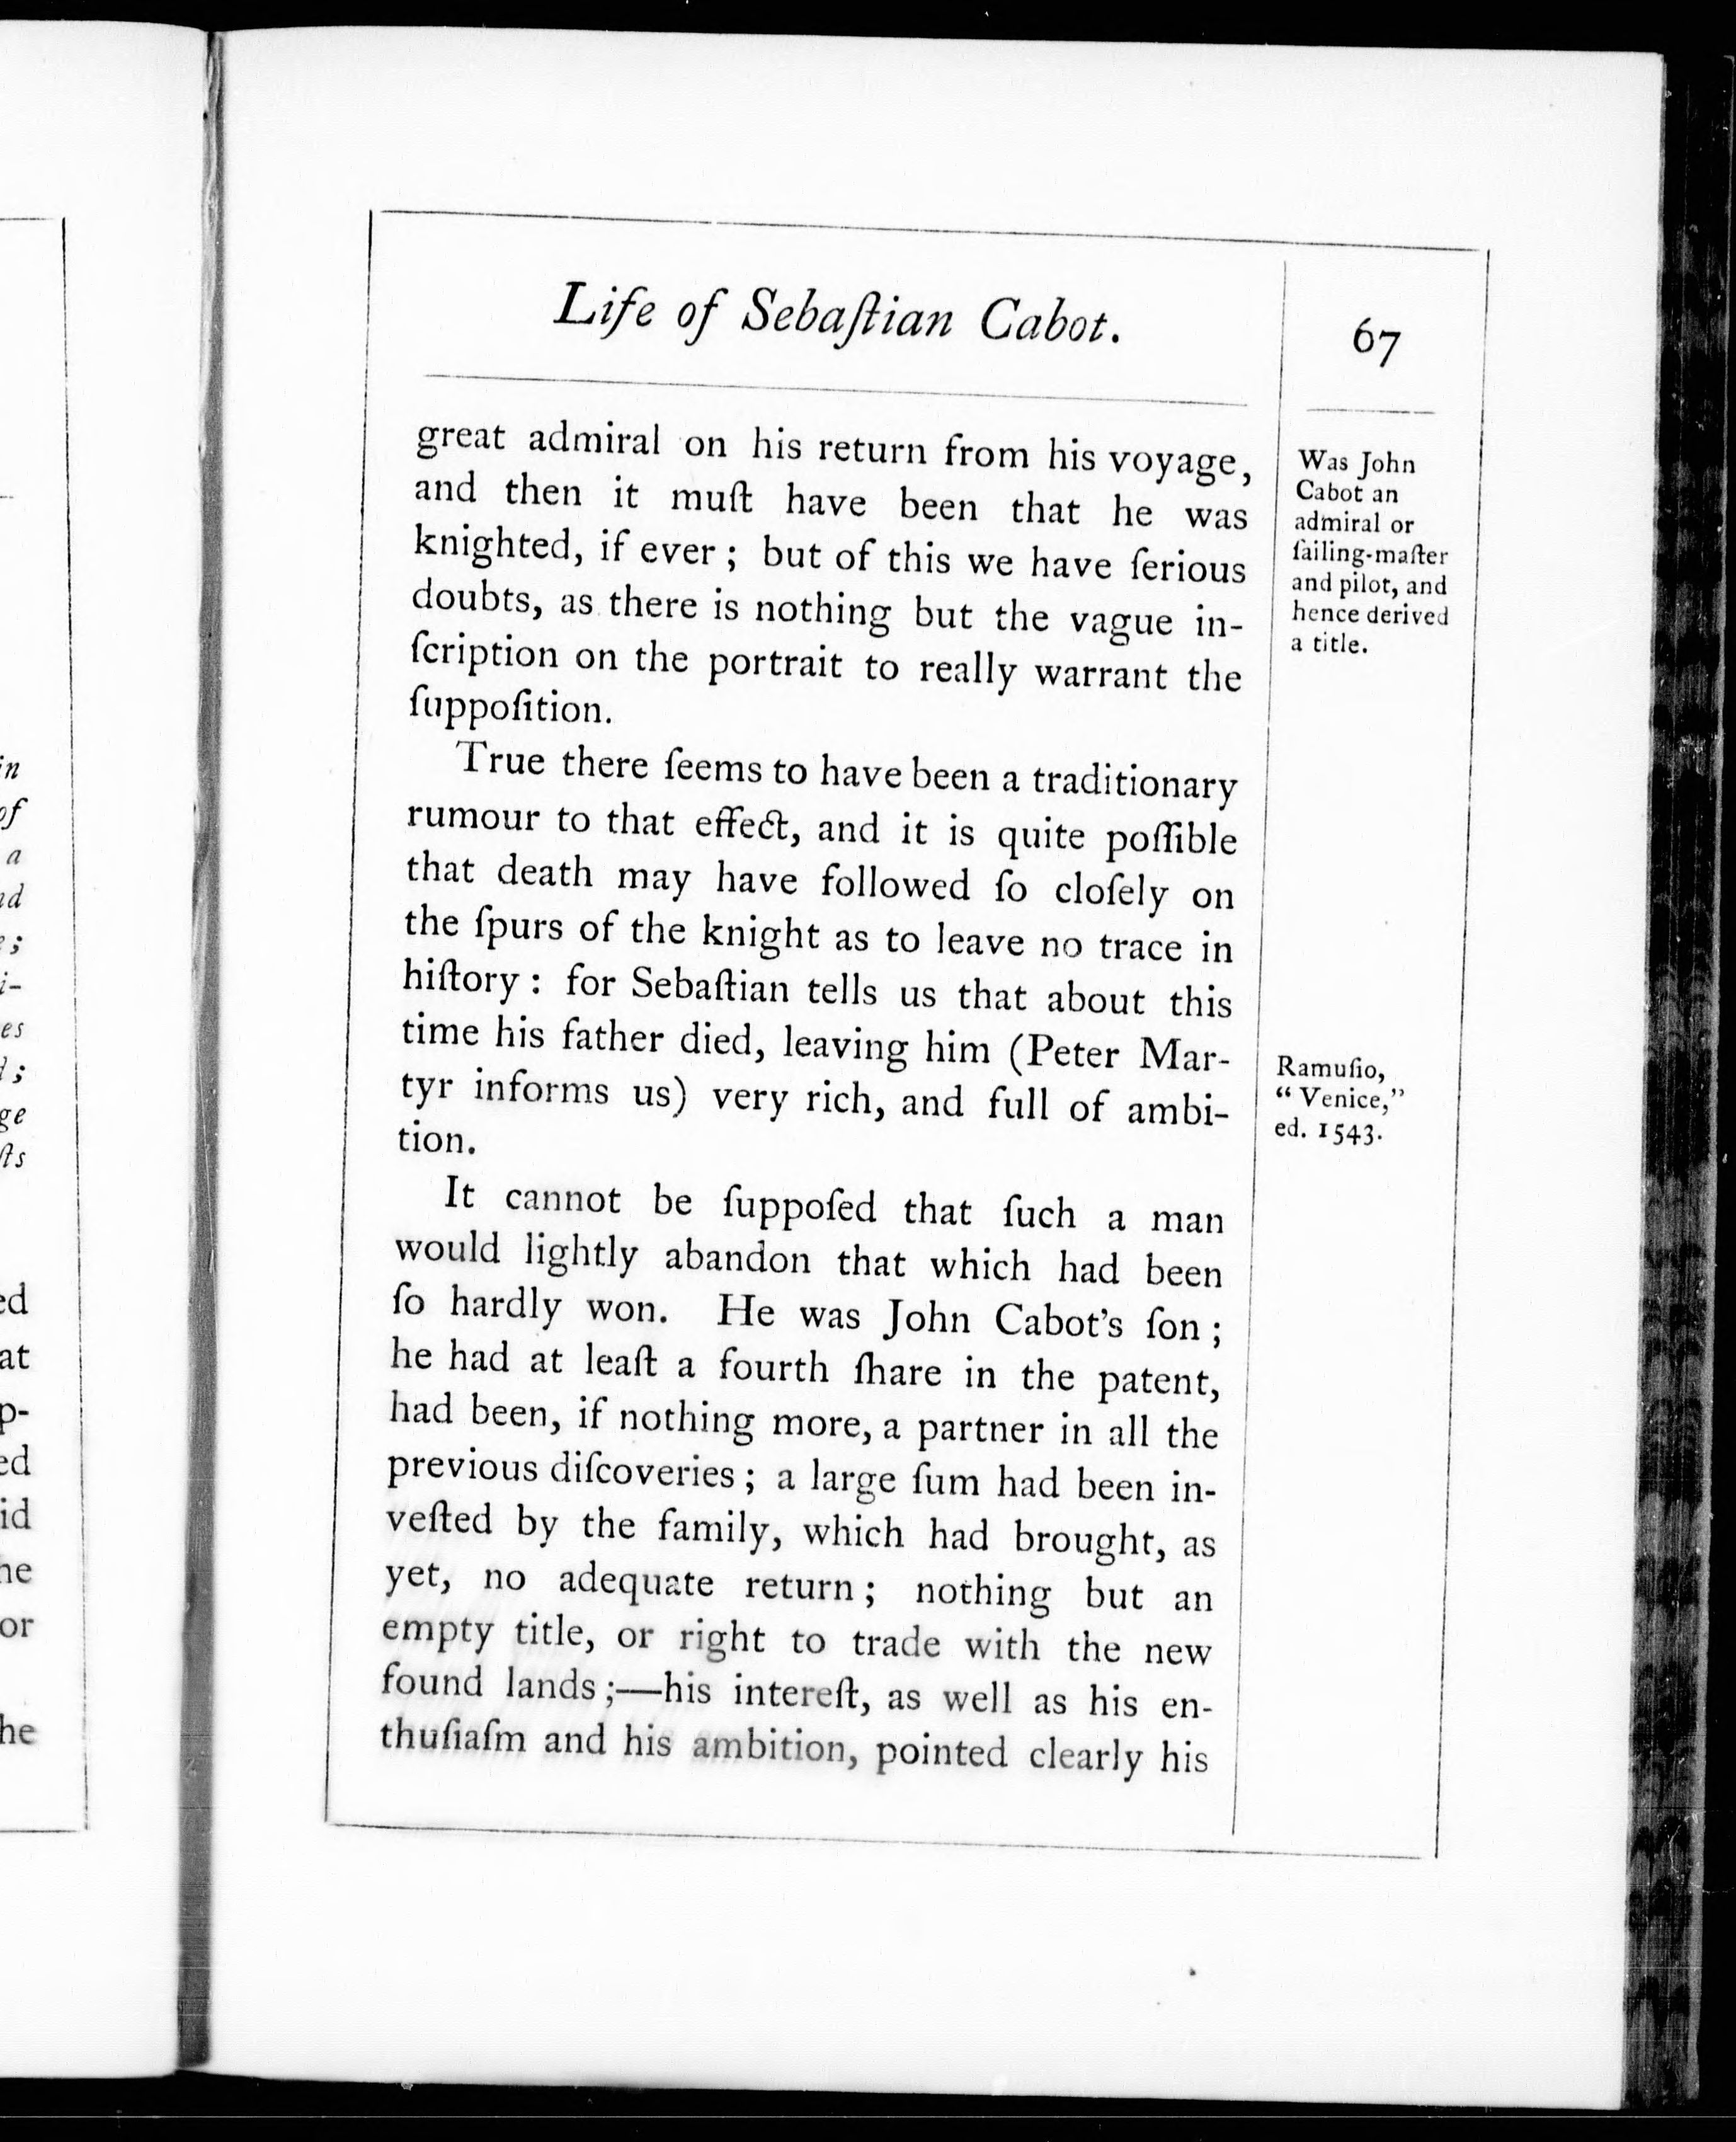 in
of
a
nd
e;
i-
es
d;
ge
ſts
ed
at
p-
ed
id
he
or
he
Life of Sebaſtian Cabot.
67
great admiral on his return from his voyage,
and then it muſt have been that he was
knighted, if ever; but of this we have ſerious
doubts, as there is nothing but the vague in-
ſcription on the portrait to really warrant the
ſuppoſition.
True there ſeems to have been a traditionary
rumour to that effect, and it is quite poſſible
that death may have followed ſo cloſely on
the ſpurs of the knight as to leave no trace in
hiſtory: for Sebaſtian tells us that about this
time his father died, leaving him (Peter Mar-
tyr informs us) very rich, and full of ambi-
tion.
It cannot be ſuppoſed that ſuch a man
would lightly abandon that which had been
ſo hardly won. He was John Cabot's ſon;
he had at leaſt a fourth ſhare in the patent,
had been, if nothing more, a partner in all the
previous diſcoveries; a large ſum had been in-
veſted by the family, which had brought, as
yet, no adequate return; nothing but an
empty title, or right to trade with the new
found lands;—his intereſt, as well as his en-
thuſiaſm and his ambition, pointed clearly his
Was John
Cabot an
admiral or
ſailing-maſter
and pilot, and
hence derived
a title.
Ramuſio,
"Venice,"
ed. 1543.